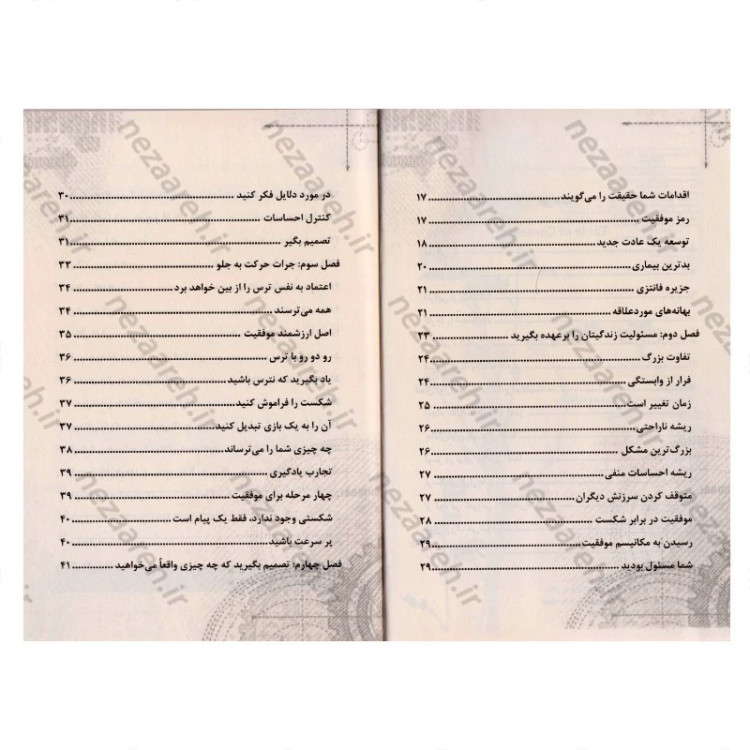 اقدامات شما حقیقت را می‌گویند ۱۷
رمز موفقیت ۱۷
توسعه یک عادت جدید ۱۸
بدترین بیماری ۲۰
جزیره فانتزی ۲۱
بهانه‌های موردعلاقه ۲۱
فصل دوم: مسئولیت زندگیتان را برعهده بگیرید ۲۳
تفاوت بزرگ ۲۴
فرار از وابستگی ۲۴
زمان تغییر است ۲۵
ریشه ناراحتی ۲۶
بزرگ‌ترین مشکل ۲۶
ریشه احساسات منفی ۲۷
متوقف کردن سرزنش دیگران ۲۷
موفقیت در برابر شکست ۲۸
رسیدن به مکانیسم موفقیت ۲۹
شما مسئول بودید ۲۹
در مورد دلایل فکر کنید ۳۰
کنترل احساسات ۳۱
تصمیم بگیر ۳۱
فصل سوم: جرات حرکت به جلو ۳۳
اعتماد به نفس ترس را از بین خواهد برد ۳۴
همه می‌ترسند ۳۴
اصل ارزشمند موفقیت ۳۵
رو دو رو با ترس ۳۶
یاد بگیرید که نترس باشید ۳۶
شکست را فراموش کنید ۳۷
آن را به یک بازی تبدیل کنید ۳۷
چه چیزی شما را می‌ترساند ۳۸
تجارب یادگیری ۳۹
چهار مرحله برای موفقیت ۳۹
شکستی وجود ندارد، فقط یک پیام است ۴۰
پر سرعت باشید ۴۰
فصل چهارم: تصمیم بگیرید که چه چیزی واقعاً می‌خواهید ۴۱
nezaareh.ir